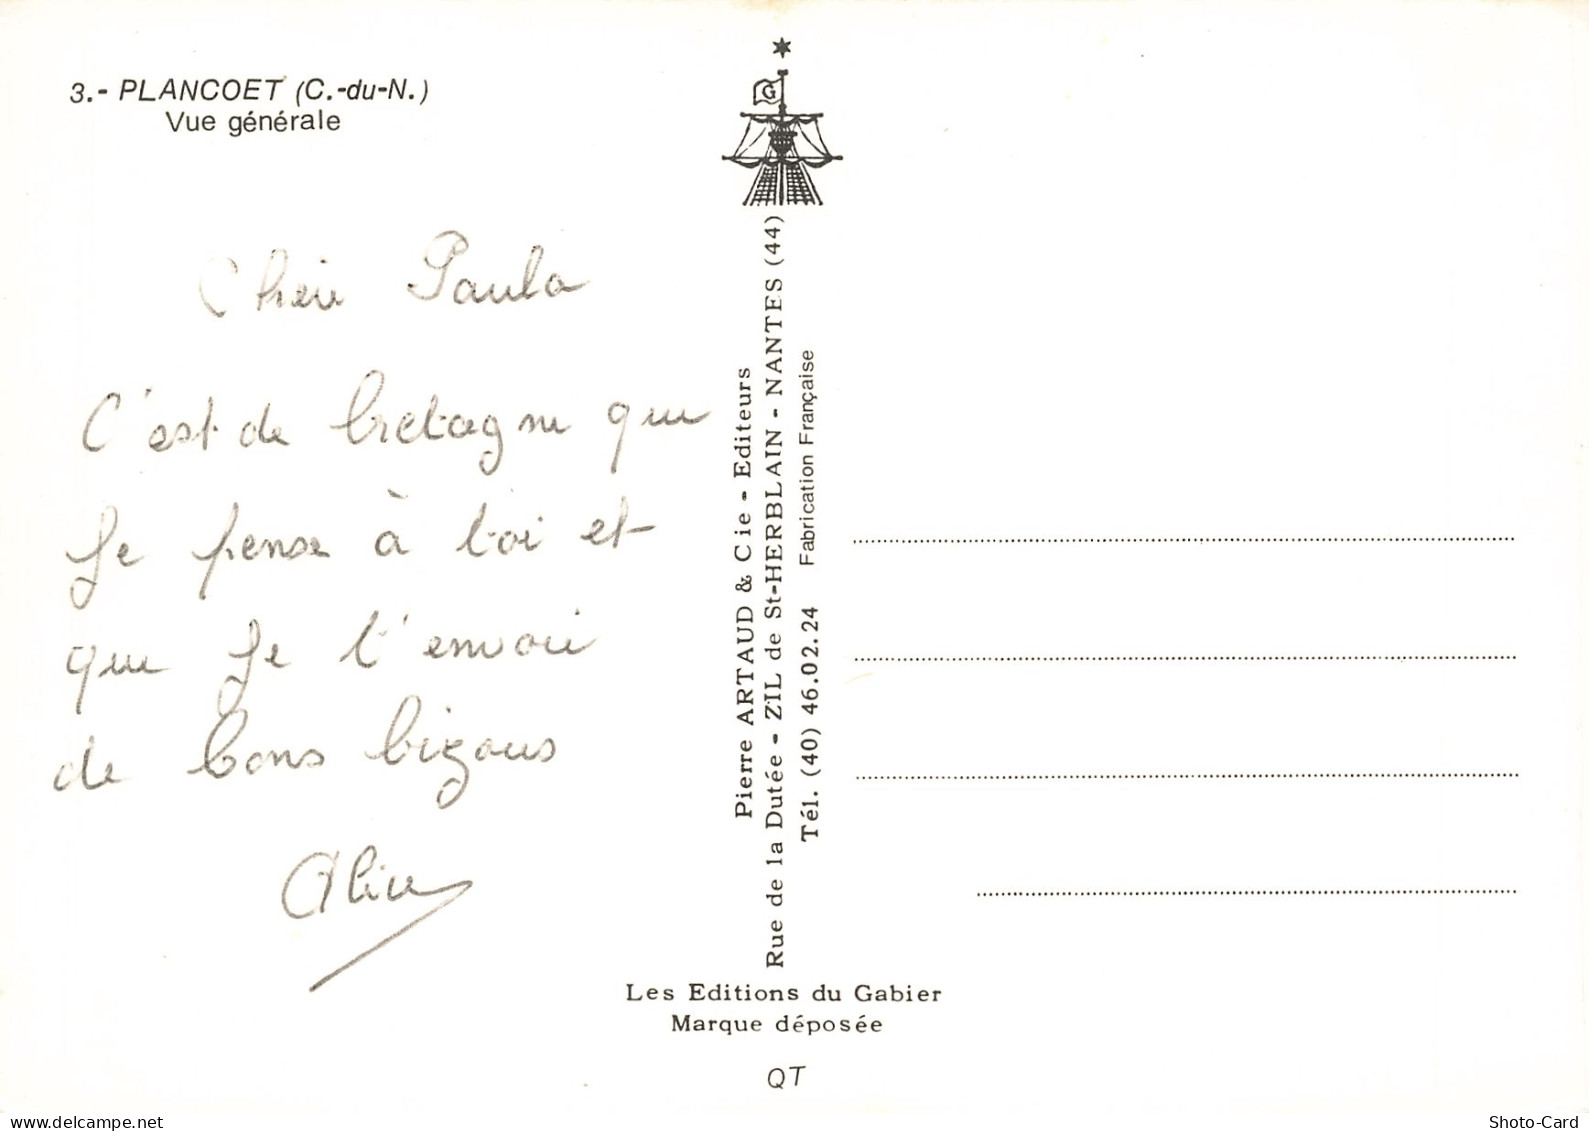 3.- PLANCOET (C.-du-N.)
Vue générale
Chère Paula
C'est de bretagne que
Je pense à toi et
que Je t'envoie
de bons bizous
Alice
G
Pierre ARTAUD & Cie - Editeurs
Rue de la Dutée - ZIL de St-HERBLAIN - NANTES (44)
Tél. (40) 46.02.24 Fabrication Française
Les Editions du Gabier
Marque déposée
QT
www.delcampe.net
Shoto-Card